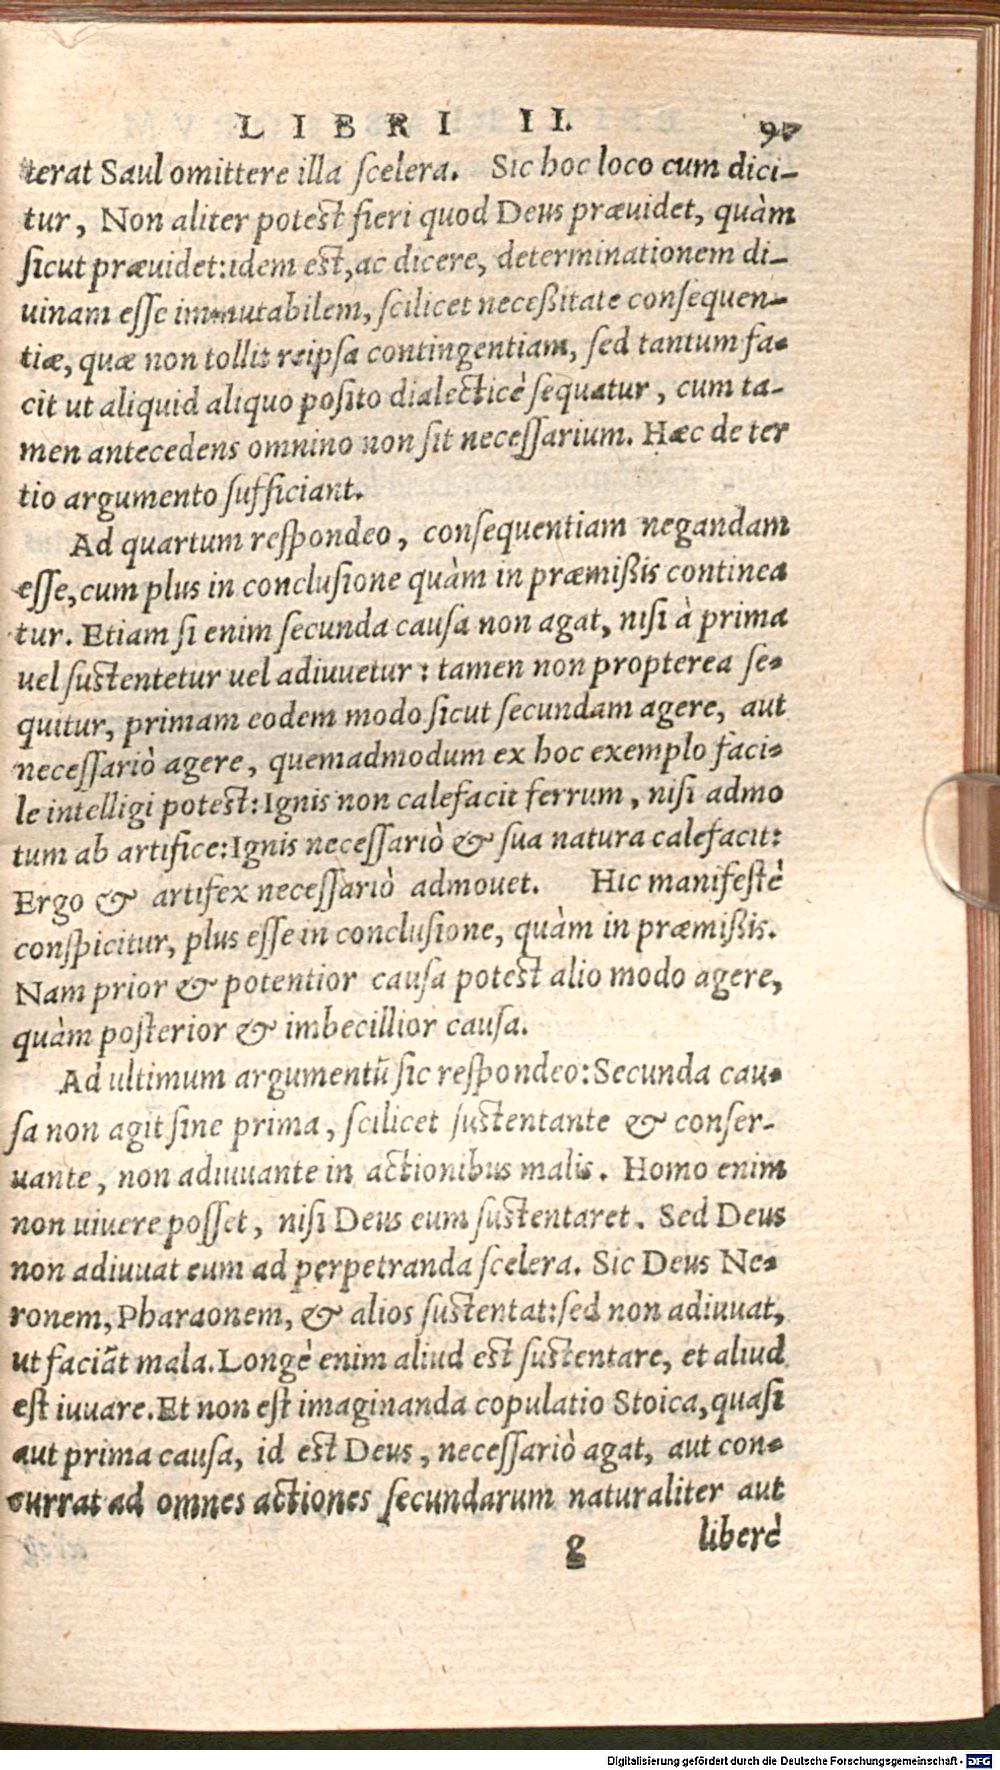 LIBRI II. 97
terat Saul omittere illa ſcelera. Sic hoc loco cum dici-
tur, Non aliter poteſt fieri quod Deus præuidet, quàm
ſicut præuidet: idem eſt, ac dicere, determinationem di-
uinam eſſe immutabilem, ſcilicet neceßitate conſequen-
tiæ, quæ non tollit reipſa contingentiam, ſed tantum fa-
cit ut aliquid aliquo poſito dialecticè ſequatur, cum ta-
men antecedens omnino non ſit neceſſarium. Hæc de ter
tio argumento ſufficiant.
Ad quartum reſpondeo, conſequentiam negandam
eſſe, cum plus in concluſione quàm in præmißis continea
tur. Etiam ſi enim ſecunda cauſa non agat, niſi à prima
uel ſuſtentetur uel adiuuetur: tamen non propterea ſe-
quitur, primam eodem modo ſicut ſecundam agere, aut
neceſſariò agere, quemadmodum ex hoc exemplo faci-
le intelligi poteſt: Ignis non calefacit ferrum, niſi admo
tum ab artifice: Ignis neceſſariò & ſua natura calefacit:
Ergo & artifex neceſſariò admouet. Hic manifeſtè
conſpicitur, plus eſſe in concluſione, quàm in præmißis.
Nam prior & potentior cauſa poteſt alio modo agere,
quàm poſterior & imbecillior cauſa.
Ad ultimum argumentũ ſic reſpondeo: Secunda cau-
ſa non agit ſine prima, ſcilicet ſuſtentante & conſer-
uante, non adiuuante in actionibus malis. Homo enim
non uiuere poſſet, niſi Deus eum ſuſtentaret. Sed Deus
non adiuuat eum ad perpetranda ſcelera. Sic Deus Ne-
ronem, Pharaonem, & alios ſuſtentat: ſed non adiuuat,
ut faciãt mala. Longè enim aliud eſt ſuſtentare, et aliud
eſt iuuare. Et non eſt imaginanda copulatio Stoica, quaſi
aut prima cauſa, id eſt Deus, neceſſariò agat, aut con-
currat ad omnes actiones ſecundarum naturaliter aut
g liberè
Digitalisierung gefördert durch die Deutsche Forschungsgemeinschaft - DFG